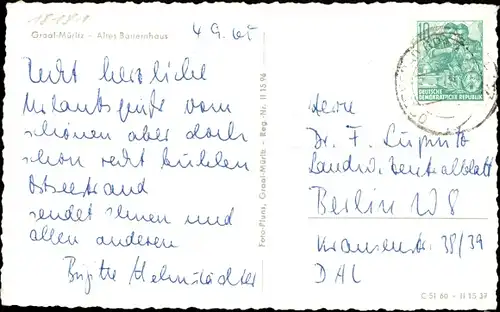 18-15-1
Graal-Müritz – Altes Bauernhaus
4.9.65
Recht herzliche
Urlaubsgrüße vom
schönen aber doch
schon recht kühlen
Ostseestrand
sendet Ihnen und
allen anderen
Brigitte Helmstädter
Foto-Pfunt, Graal-Müritz – Reg.-Nr. II 15 96
10
DEUTSCHE
DEMOKRATISCHE REPUBLIK
Herrn
Dr. F. Lupnitz
Landw. Zentralblatt
Berlin W8
Krausenstr. 38/39
DAL
C 51 60 – II 15 39